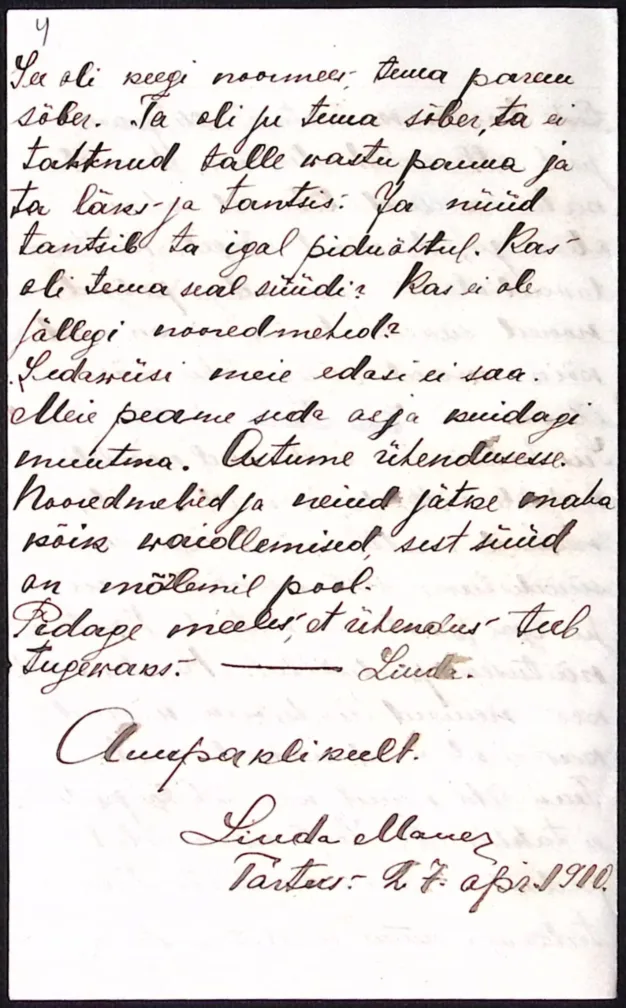 4
See oli keegi noormees, tema parem
sõber. Ta oli ju tema sõber, ta ei
tahtnud talle wastu panna ja
ta läks ja tantsis. Ja nüüd
tantsib ta igal piduõhtul. Kas
oli tema seal süüdi? Kas ei ole
jällegi nooredmehed?
Sedawiisi meie edasi ei saa.
Meie peame seda asja kuidagi
muutma. Astume ühendusesse.
Nooredmehed ja neiud jätke maha
kõik waidlemised, sest süüd
on mõlemil pool.
Pidage meeles, et ühendus teeb
tugewaks. — Linda.
Linda
Tartus. 27. apr. 1910.